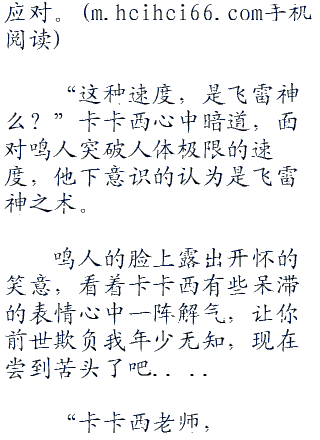 应对。(m.hcihci66.com手机
阅读)
“这种速度，是飞雷神
么？”卡卡西心中暗道，面
对鸣人突破人体极限的速
度，他下意识的认为是飞雷
神之术。
鸣人的脸上露出开怀的
笑意，看着卡卡西有些呆滞
的表情心中一阵解气，让你
前世欺负我年少无知，现在
尝到苦头了吧....
“卡卡西老师，